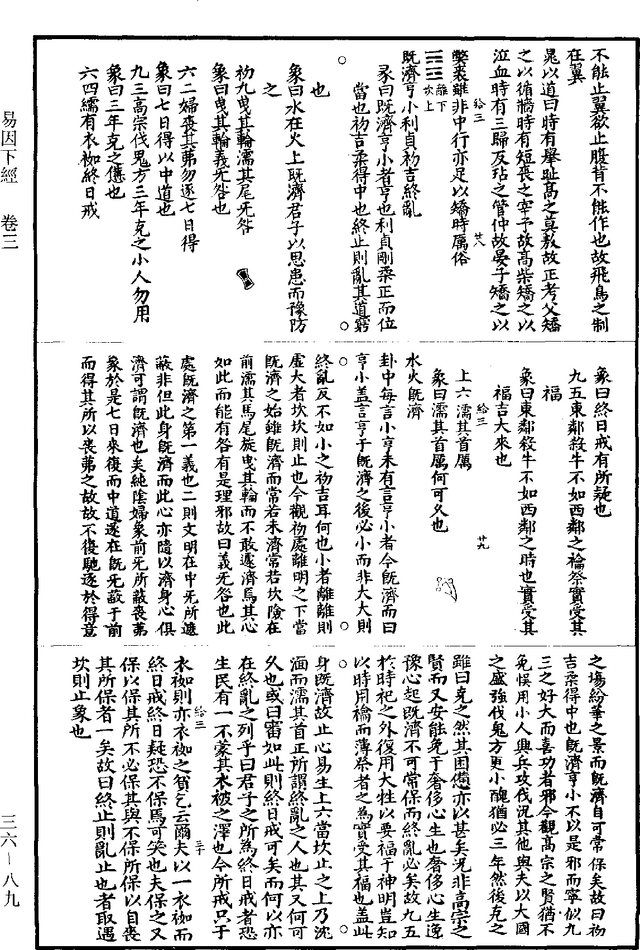 易因下經　卷三
三六—八九
不能止翼欲止腹背不能作也故飛鳥之制
在翼
晁以道曰時有舉趾高之莫敖故正考父矯
之以循牆時有短喪之宰予故高柴矯之以
泣血時有三歸反玷之管仲故晏子矯之以
敝裘雖非中行亦足以矯時厲俗
給三
廿八
離下
坎上
既濟亨小利貞初吉終亂
彖曰既濟亨小者亨也利貞剛柔正而位
當也初吉柔得中也終止則亂其道窮
也
象曰水在火上既濟君子以思患而豫防
之
初九曳其輪濡其尾无咎
象曰曳其輪義无咎也
六二婦喪其茀勿逐七日得
象曰七日得以中道也
九三高宗伐鬼方三年克之小人勿用
象曰三年克之憊也
六四繻有衣袽終日戒
象曰終日戒有所疑也
九五東鄰殺牛不如西鄰之禴祭實受其
福
象曰東鄰殺牛不如西鄰之時也實受其
福吉大來也
上六濡其首厲
給三
廿九
象曰濡其首厲何可久也
水火既濟
卦中每言小亨未有言亨小者今既濟而曰
亨小蓋言亨于既濟之後必小而非大大則
終亂反不如小之初吉耳何也小者離離則
虛大者坎坎則止也今觀初處離明之下當
既濟之始雖既濟而常若未濟常若坎險在
前濡其馬尾旋曳其輪而不敢遽濟焉其心
如此而能有咎有是理邪故曰義无咎也此
處既濟之第一義也二則文明在中无所遮
蔽非但此身既濟而此心亦隨以濟身心俱
濟可謂既濟也矣純陰婦象前无所蔽喪茀
象於是七日來復而中道遂在既无蔽于前
而得其所以喪茀之故故不復馳逐於得意
之場紛華之景而既濟自可常保矣故曰初
吉柔得中也既濟亨小不以是邪而寧似九
三之好大而喜功者邪今觀高宗之賢猶不
免悞用小人興兵攻伐況其他與夫以大國
之盛強伐鬼方更小醜猶必三年然後克之
雖曰克之然其困憊亦以甚矣況非高宗之
賢而又安能免于奢侈心生也奢侈心生逸
豫心起既濟不可常保而終亂必矣故九五
於時祀之外復用大牲以要福于神明豈知
以時用禴而薄祭者之為實受其福也蓋此
身既濟故止心易生上六當坎止之上乃沈
湎而濡其首正所謂終亂之人也其又何可
久也或曰審如此則終日戒可矣而何以亦
在終亂之列乎曰君子之所為終日戒者恐
生民有一不蒙其衣被之澤也今所戒只于
衣袽則亦衣袽之貧乞云爾夫以一衣袽而
給三
三十
終日戒終日疑恐不保焉可笑也夫保之又
保以保其所不必保其與不保所保以自喪
其所保者一矣故曰終止則亂止也者取遇
坎則止象也